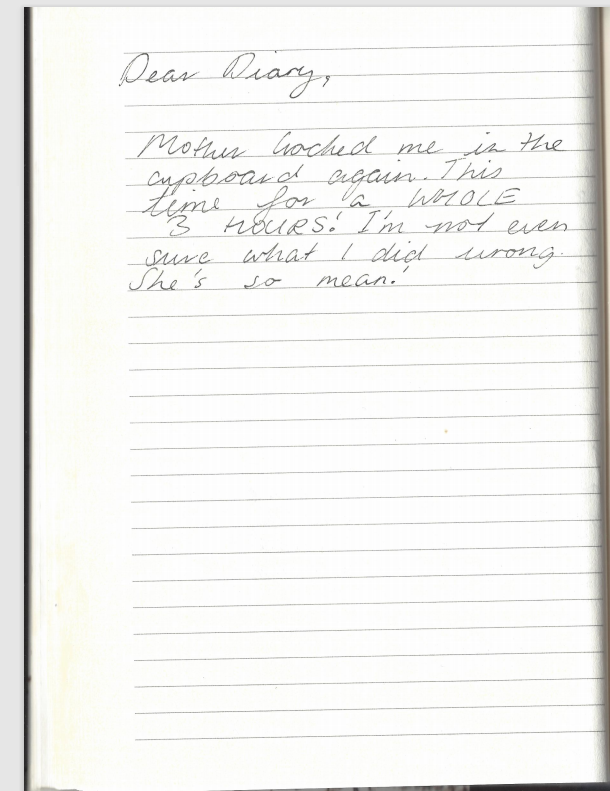 Dear Diary,
Mother locked me in the
cupboard again. This
time for a WHOLE
3 HOURS! I'm not even
sure what I did wrong.
She's so mean!